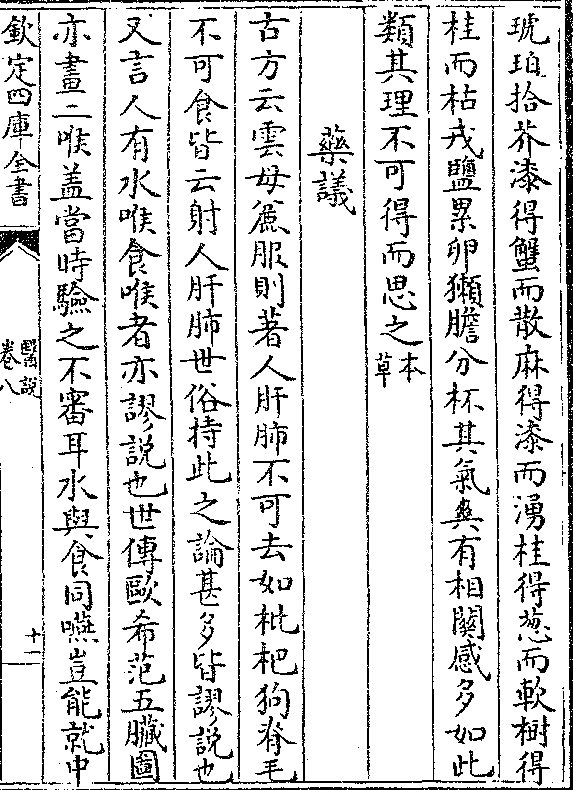 琥珀拾芥漆得蟹而散麻得漆而湧桂得葱而軟樹得
桂而枯戎鹽累卵獺膽分杯其氣爽有相關感多如此
類其理不可得而思之本草
藥議
古方云雲母麄服則著人肝肺不可去如枇杷狗脊毛
不可食皆云射人肝肺世俗持此之論甚多皆謬説也
又言人有水喉食喉者亦謬説也世傳歐希范五臟圖
亦畫二喉盖當時驗之不審耳水與食同嚥豈能就中
欽定四庫全書
醫説
卷八
十一